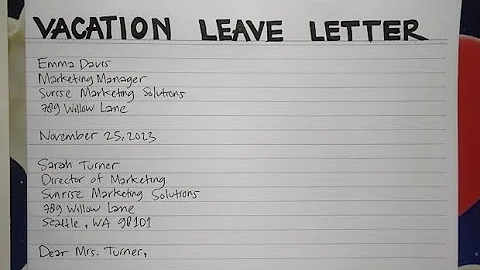 VACATION LEAVE LETTER
Emma Davis
Marketing Manager
Sunrise Marketing Solutions
789 Willow Lane
November 25, 2023
Sarah Turner
Director of Marketing
Sunrise Marketing Solutions
789 Willow Lane
Seattle, WA 98101
Dear Mrs. Turner,